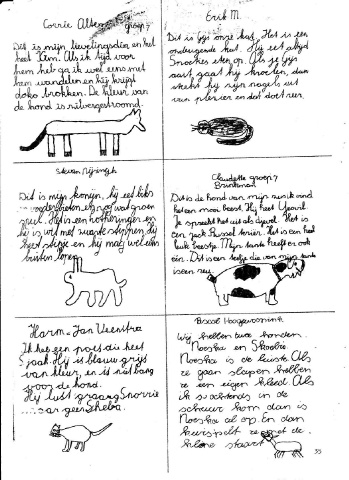 Corrie Alberts groep 7
Dit is mijn lievelingsdier en het
heet Kim. Als ik tijd voor
hem heb ga ik wel eens met
hem wandelen en hij krijgt
doko brokken. De kleur van
de hond is zilvergestroomd.
Erik M.
Dit is Gijs onze kat. Het is een
ondeugende kat. Hij eet altijd
Snoekies op. Als je Gijs
aait gaat hij knorren, dan
steekt hij zijn nagels uit
van plezier en dat doet zeer.
Steven Nijsingh
Dit is mijn konijn, hij eet biks
voederbieten en nog wat groen
spul. Het is een hotheringer en
hij is wit met zwarte stippen. Hij
heet stipje en hij mag wel eens
buiten lopen
Claudette groep 7
Brinkman
Dit is de hond van mijn
het een mooi beest. Hij heet
Je spreekt het uit als Het is
een jack Russel teriër. Het is een heel
leuk beestje. Mijn tante heeft er ook
één. Dit is een teefje die van mijn tante
is een reu.
Harm-Jan Veenstra
Ik heb een poes die heet
5 jaar. Hij is blauw grijs
van kleur, en is niet bang
voor de hond.
Hij lust graag Snorrie
geen Sheba.
Pascal Hoogewoonink
Wij hebben twee honden.
Noeska en Skoebie.
Noeska is de leukste. Als
ze gaan slapen hebben
ze een eigen kleed. Als
ik 's ochtends in de
schuur kom dan is
Noeska al op. En dan
kwispelt ze met de
kleine staart
35